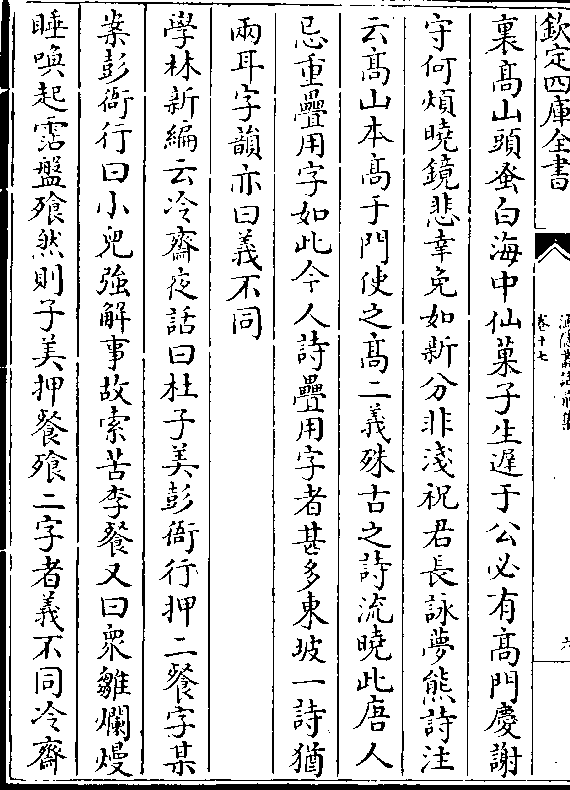 欽定四庫全書
漁隱叢話前集
卷十七
六
裏髙山頭蚤白海中仙菓子生遲于公必有髙門慶謝
守何煩曉鏡悲幸免如新分非淺祝君長詠夢熊詩注
云髙山本髙于門使之髙二義殊古之詩流曉此唐人
忌重疊用字如此今人詩疊用字者甚多東坡一詩猶
兩耳字韻亦曰義不同
學林新編云冷齋夜話曰杜子美彭衙行押二餐字某
案彭衙行曰小兒強解事故索苦李餐又曰衆雛爛熳
睡喚起霑盤飱然則子美押餐飱二字者義不同冷齋